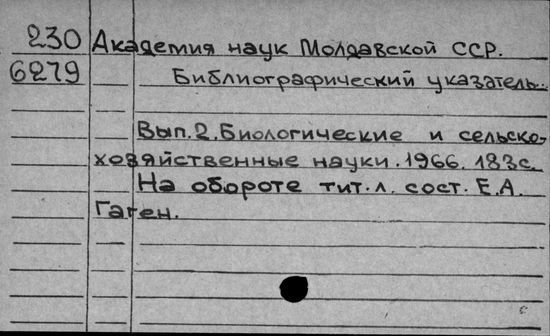 230 Академия наук Молдавской ССР.
6279 Библиографический указатель..
Вып.2. Биологические и сельско-
хозяйственные науки. 1966. 183с.
На обороте тит.л. сост. Е.А.
Гаген.